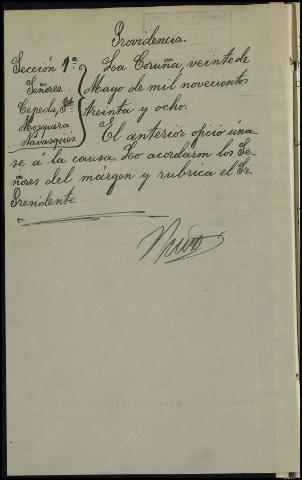 Providencia.
Sección 1ª
Señores.
Cepeda, Pte
Mosquera
Navasqüés
La Coruña, veinte de
Mayo de mil novecientos
treinta y ocho.
El anterior oficio úna-
se á la causa. Lo acordaron los Se-
ñores del margen y rubrica el Sr.
Presidente.